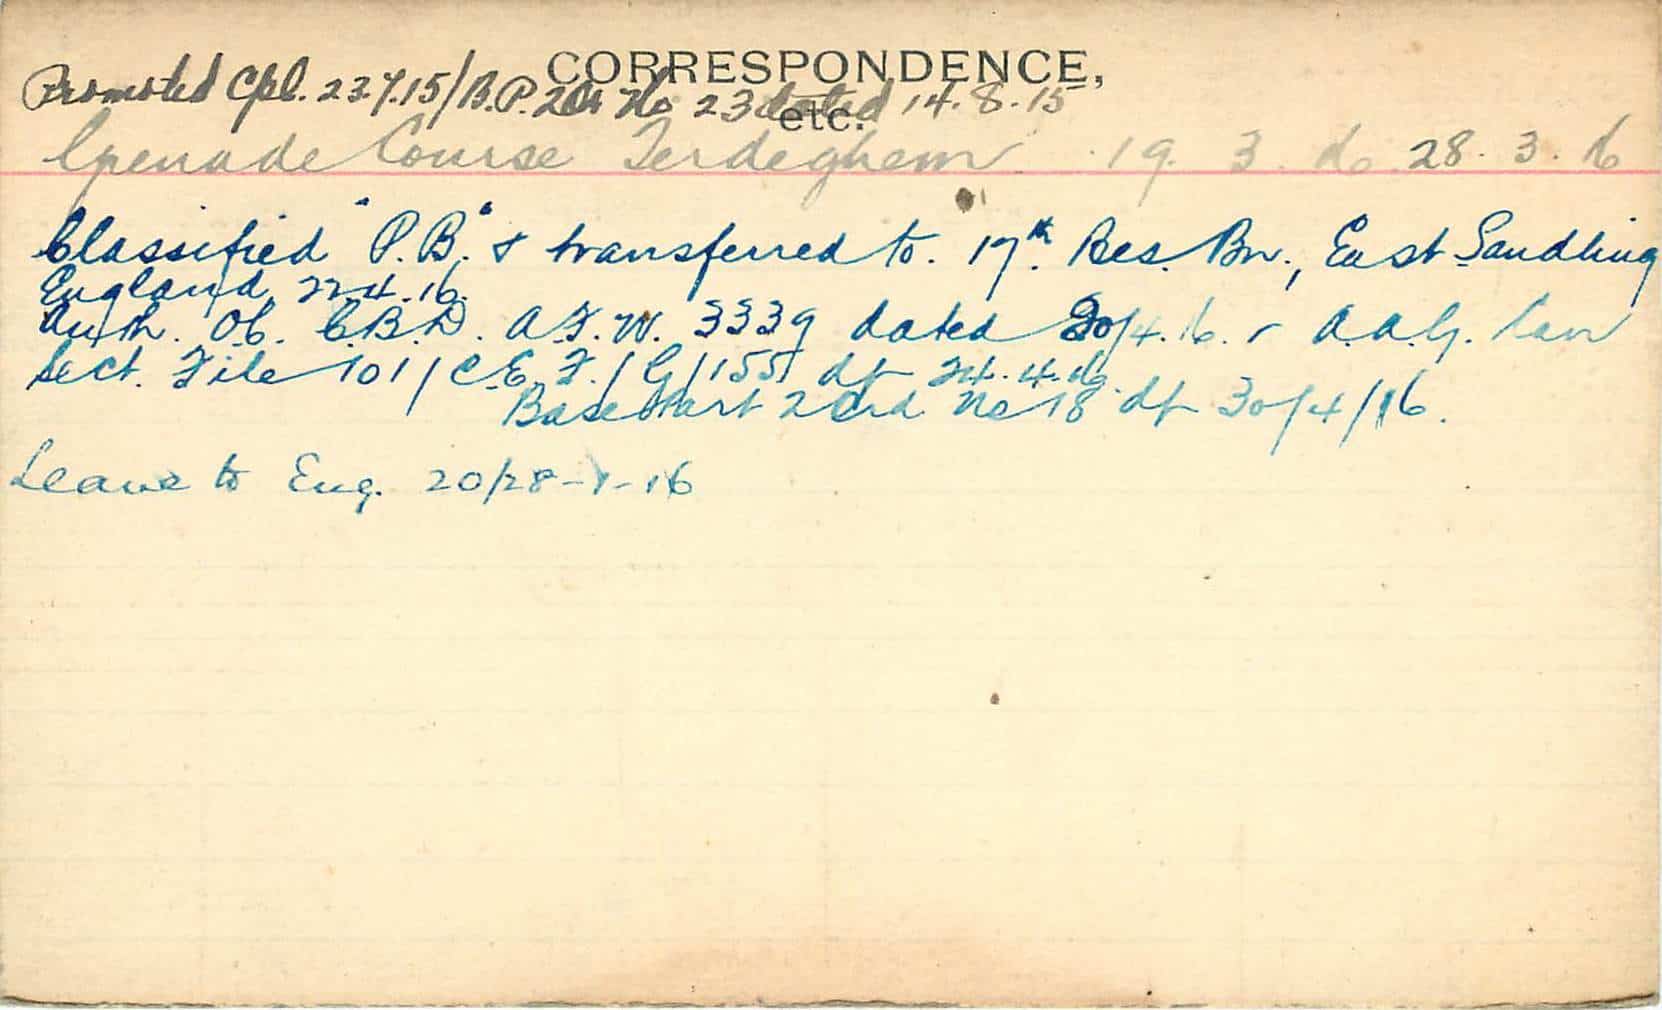 CORRESPONDENCE,
etc.
Promoted Cpl. 23.7.15/B.P. 2 Or No 23 dated 14.8.15
Grenade Course Terdeghem. 19. 3. to 28. 3. 16
Classified "P.B." & transferred to. 17th. Res. Bn., East Sandling
England, 22.4.16.
Auth. O.C. C.B.D. A.F.W. 3339 dated 20/4.16. & A.A.G. Can
Sect. File 101/C.E.F./G/155 dt 24.4.16.
Base Part 2 Ord No 18 dt 30/4/16.
Leave to Eng. 20/28-1-16